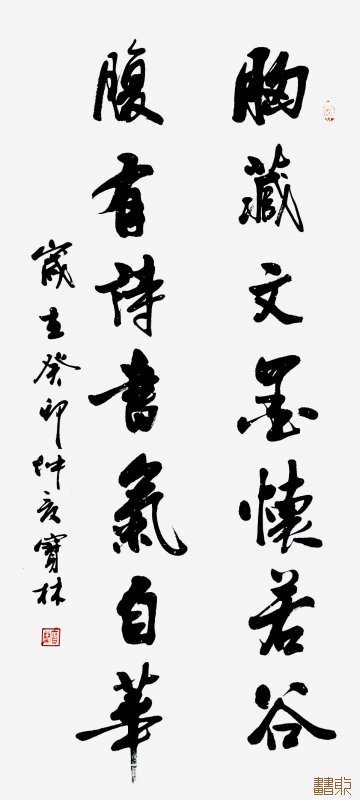 胸藏文墨懷若谷
腹有詩書氣自華
歲在癸卯
寶林